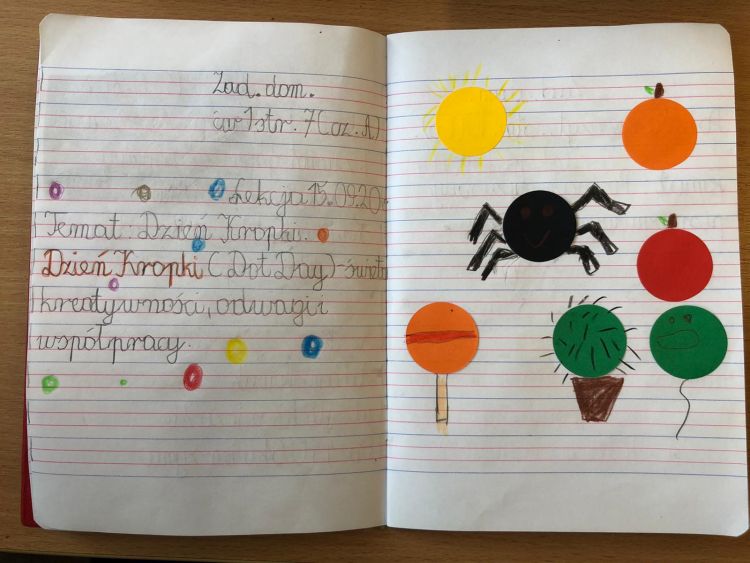 Zad. dom.
ćw 1 str. 7 (cz. A)
Lekcja 15.09.20
Temat: Dzień Kropki.
Dzień Kropki (Dot Day) - święto
kreatywności, odwagi i
współpracy.